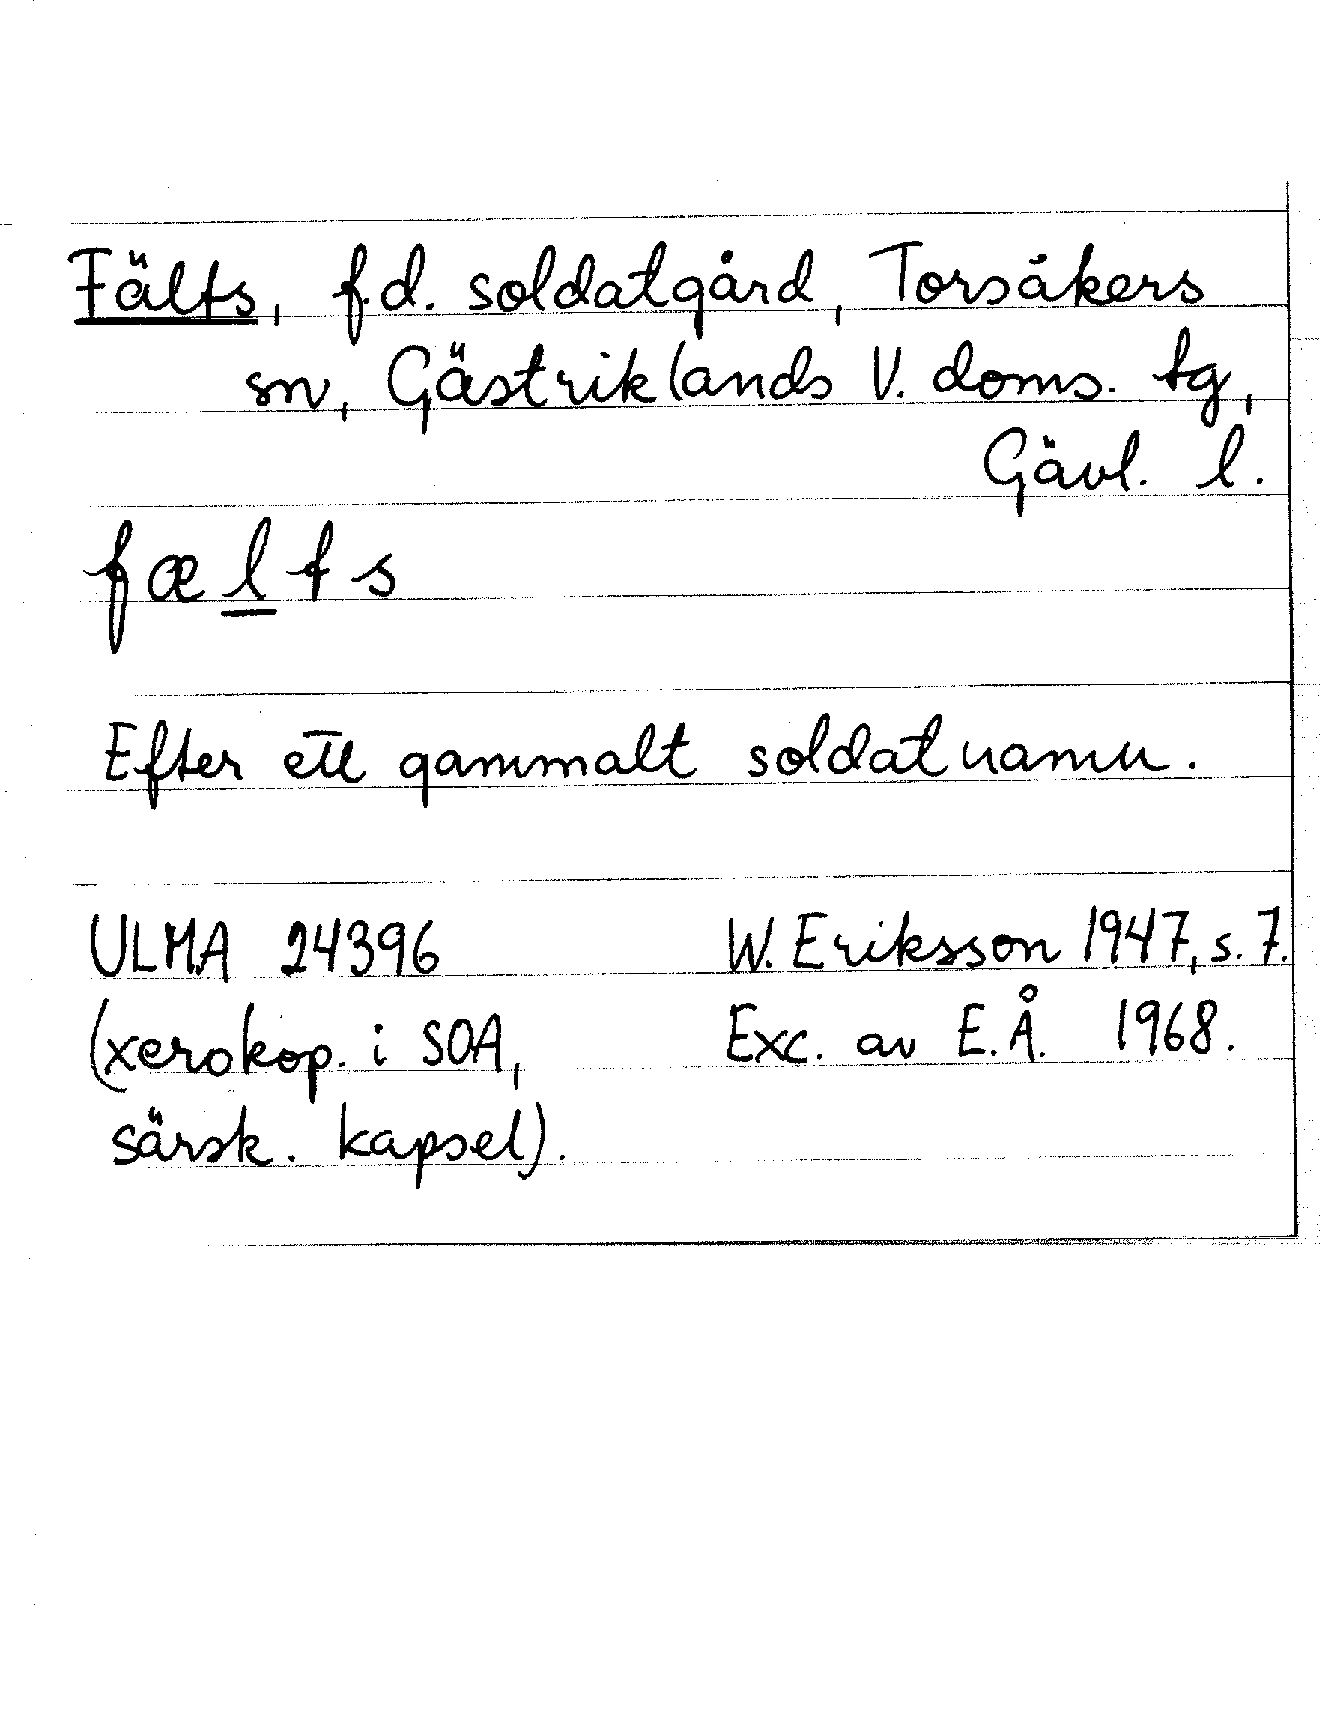 Fälts, f.d. soldatgård, Torsåkers
sn, Gästriklands V. doms. tg,
Gävl. l.
fælts
Efter ett gammalt soldatnamn.
ULMA 24396 W. Eriksson 1947, s. 7.
(xerokop. i SOA, Exc. av E.Å. 1968.
särsk. kapsel).